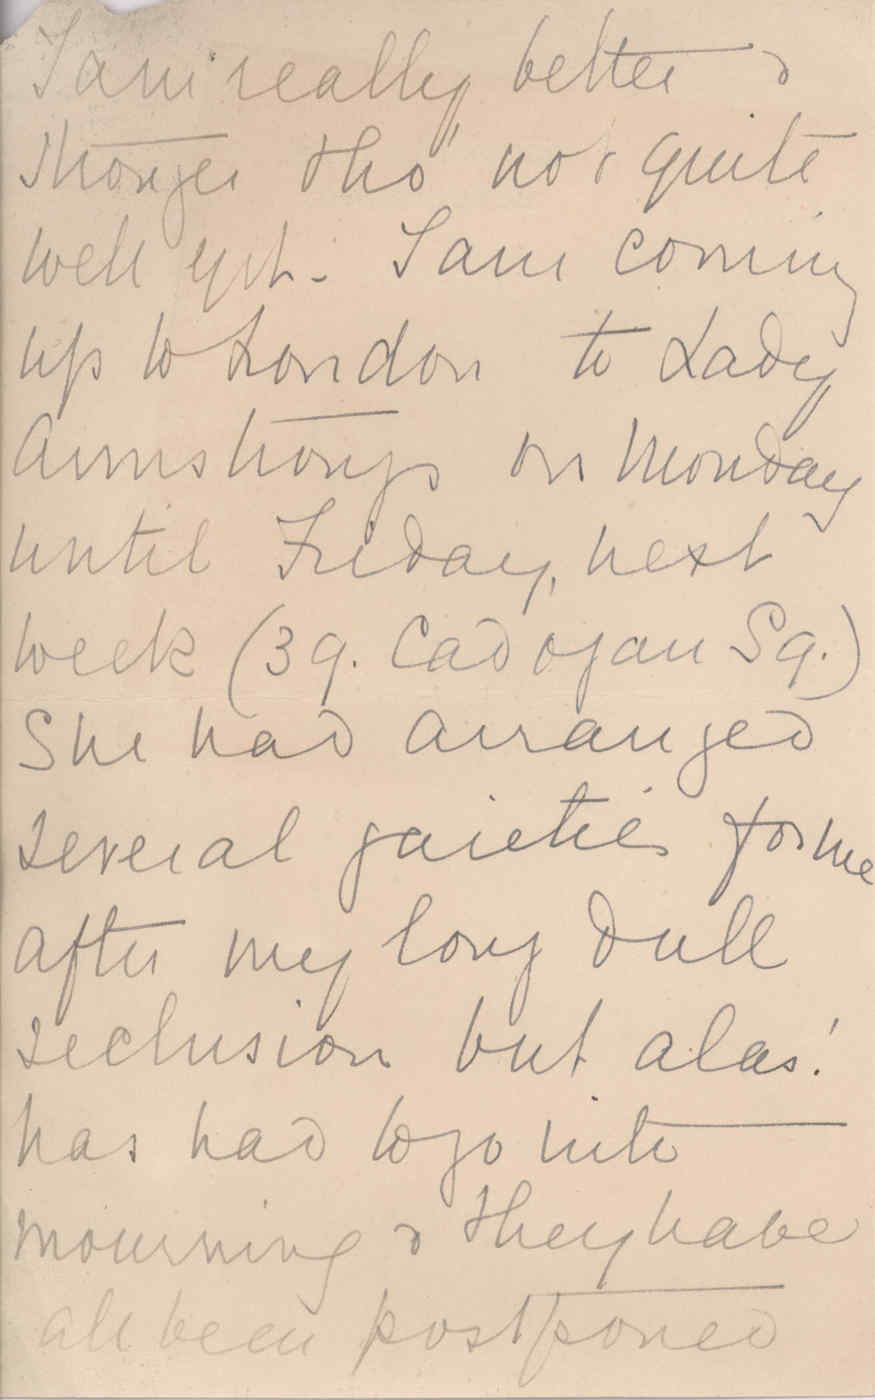 I am really better &
stronger tho' not quite
well yet. I am coming
up to London to Lady
Armstrongs on Monday
until Friday, next
week (39. Cadogan Sq.)
She had arranged
several gaieties for me
after my long dull
seclusion but alas!
has had to go into
mourning & they have
all been postponed